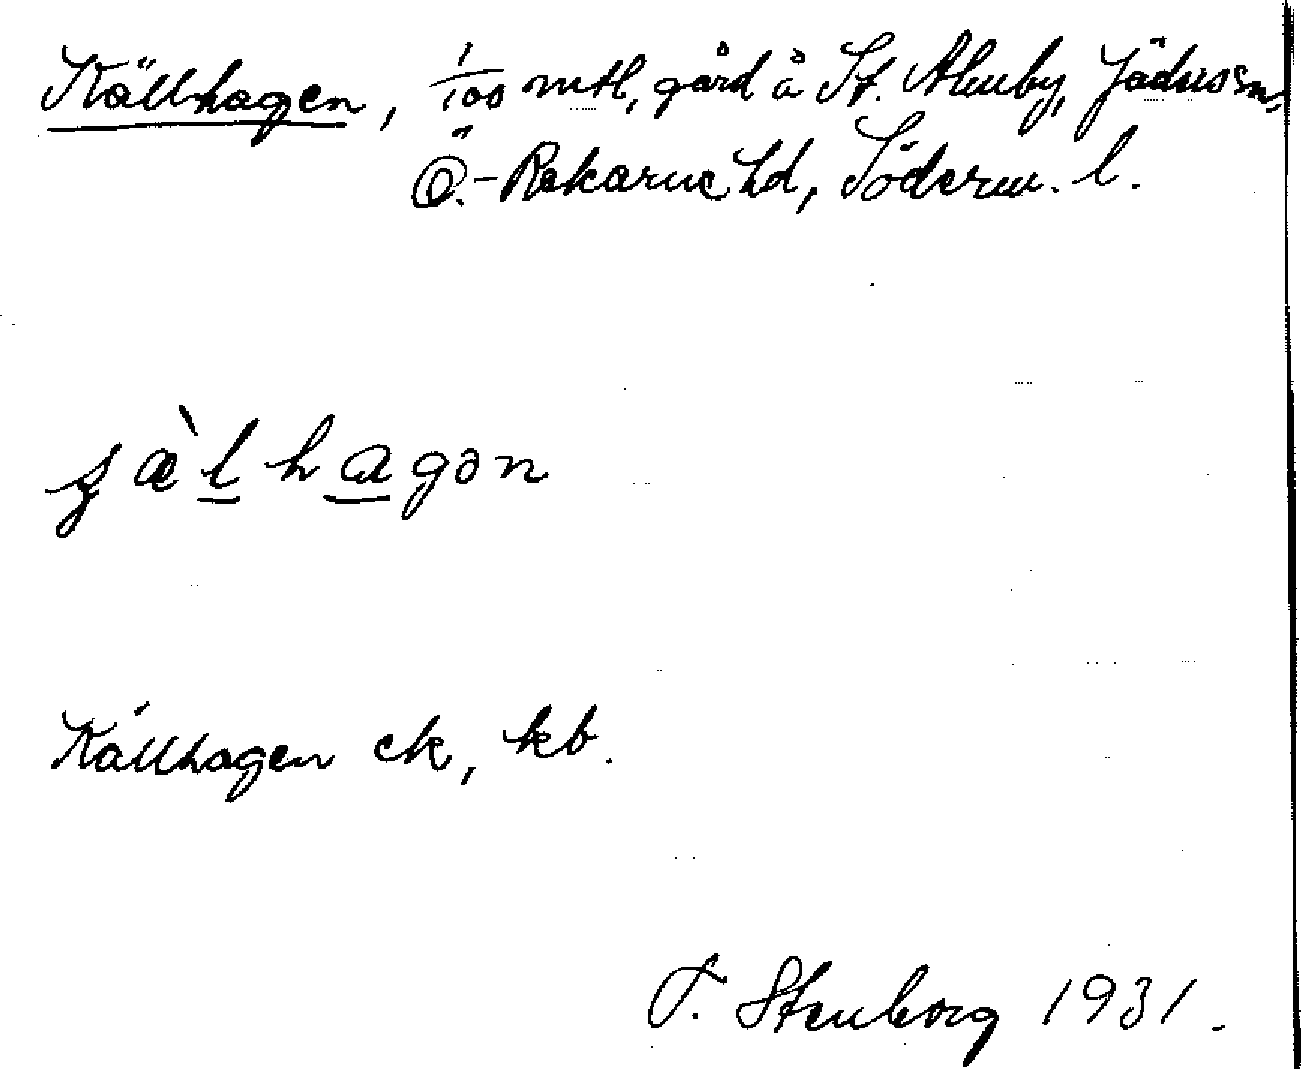 Källhagen, 1/100 mtl, gård å St. Aluby, Jäders sn,
Ö.-Rekarne hd, Söderm. l.
Källhagen ek, kb.
T. Stenborg 1931.